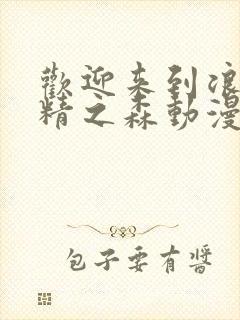 歡迎来到浪
精之森動漫
包子要有醬